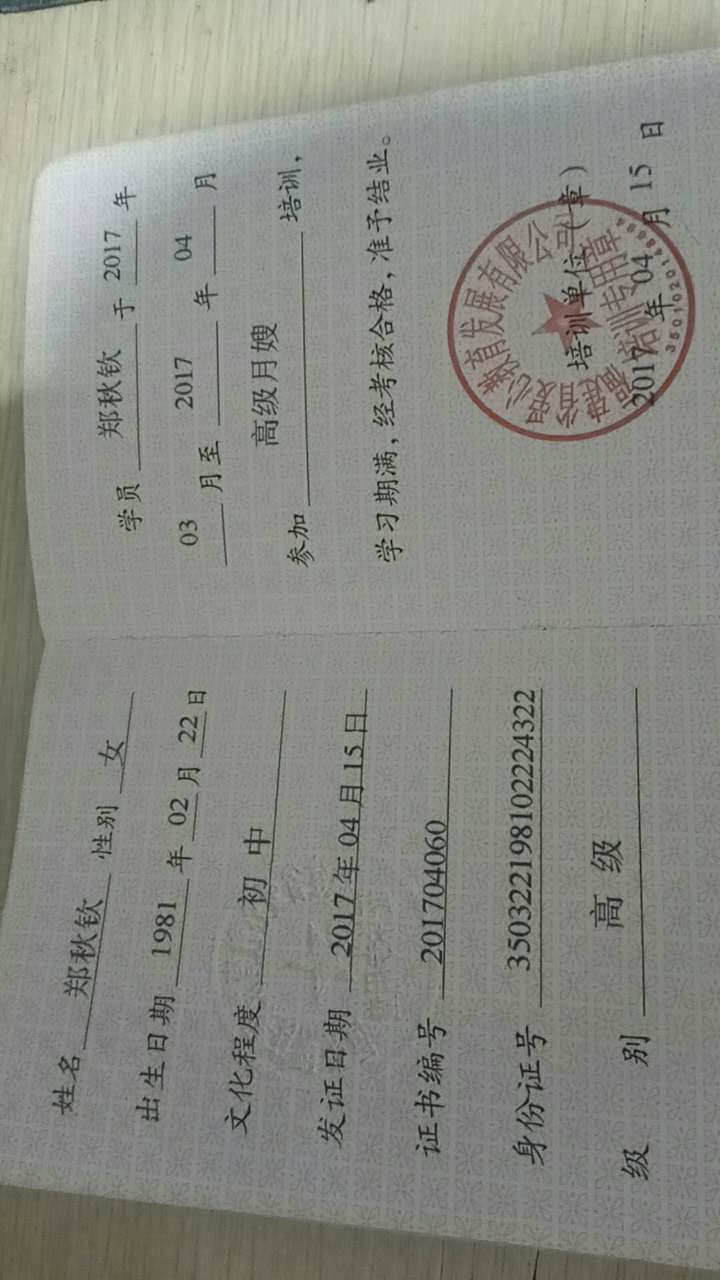 姓名 郑秋钦 性别 女
出生日期 1981 年 02 月 22 日
文化程度 初中
发证日期 2017年04月15日
证书编号 201704060
身份证号 350322198102224322
级 别 高级
学员 郑秋钦 于 2017 年
03 月至 2017 年 04 月
参加 高级月嫂 培训,
学习期满,经考核合格,准予结业。
培训单位(章)
2017 年 04 月 15 日
福建省安心教育发展有限公司
培训专用章